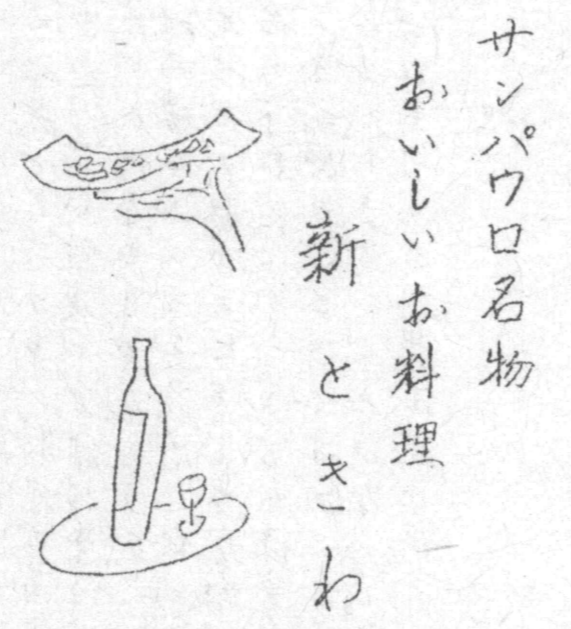 サンパウロ名物
おいしいお料理
新ときわ